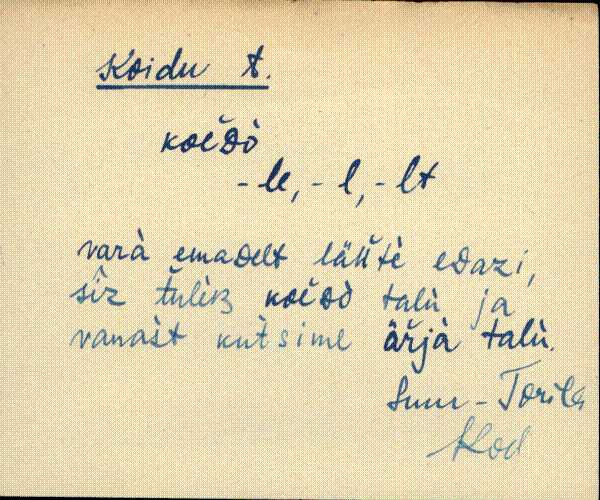 Koidu t.
koĕDò
-le, -l, -lt
varà emaDelt läütè eDazi,
sîz tuliB koĕDò talù ja
vanašt kutsime ärjà talù.
Suur-Torila
Kod